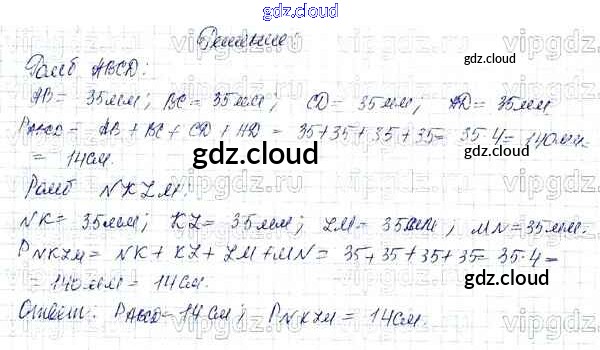 gdz.cloud
Решение:
gdz.cloud
Ромб ABCD:
AB = 35мм; BC = 35мм; CD = 35мм; AD = 35мм
PABCD = AB + BC + CD + AD = 35+35+35+35 = 35·4 = 140мм =
= 14см.
gdz.cloud
gdz.cloud
Ромб NKLM:
NK = 35мм; KL = 35мм; LM = 35мм; MN = 35мм.
PNKLM = NK + KL + LM + MN = 35+35+35+35 = 35·4 =
= 140мм = 14см.
gdz.cloud
gdz.cloud
Ответ: PABCD = 14см; PNKLM = 14см.